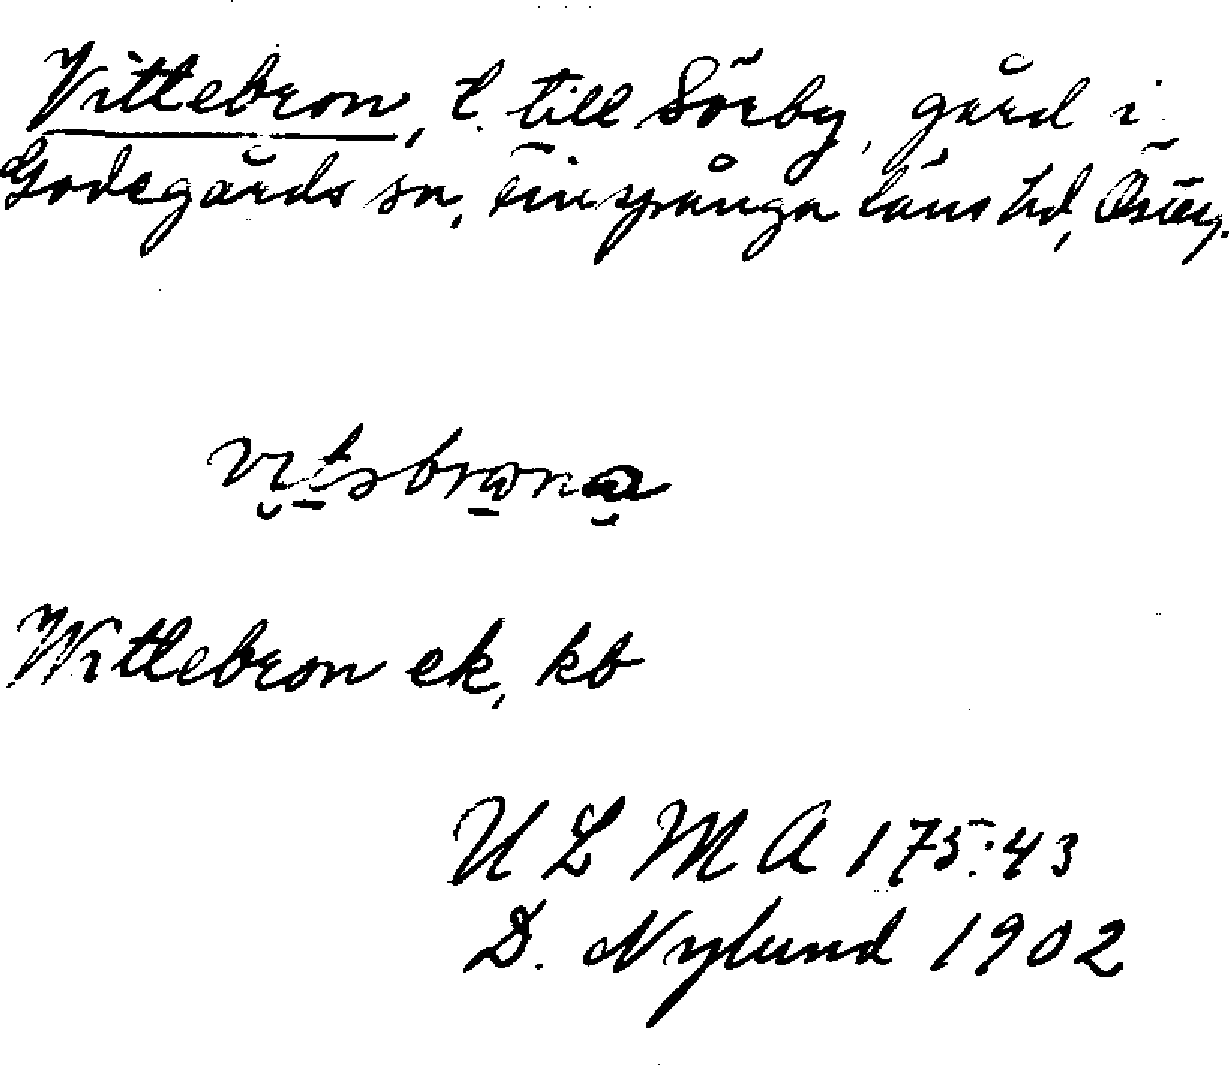 Vittebron, t. till Sörby, gård i
Godegårds sn, Finspånga läns hd, Östg.
Wittebron ek, kb
ULMA 175:43
D. Nylund 1902